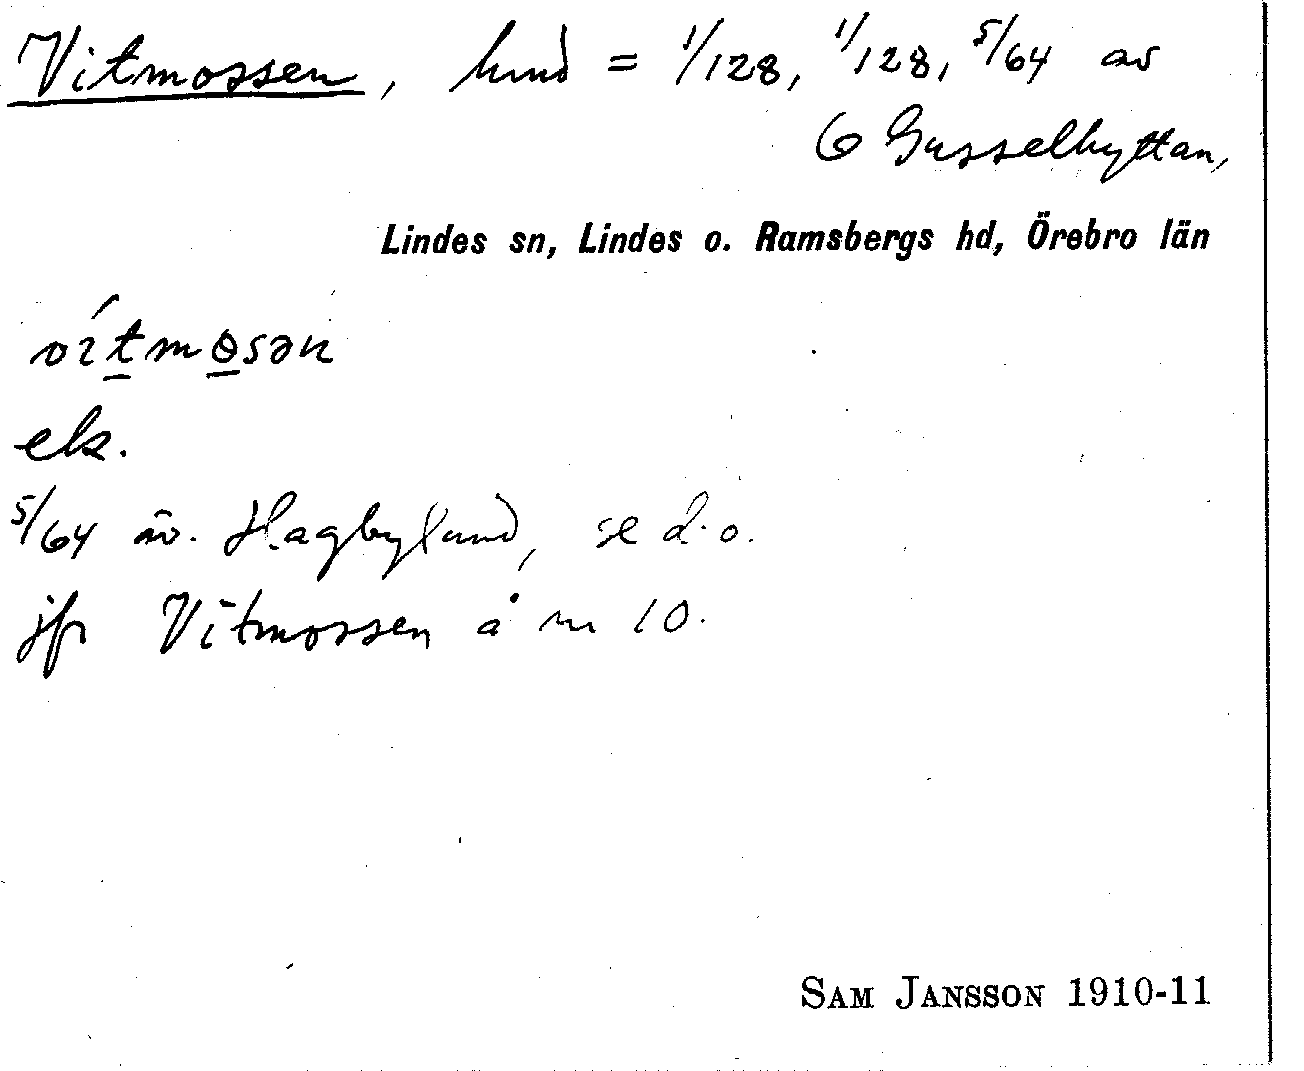 Vitmossen, hmd = 1/128, 1/128, 5/64 av
6 Gusselhyttan,
Lindes sn, Lindes o. Ramsbergs hd, Örebro län
vítmɵsən
ek.
5/64 äv. Hagbylund, se d.o.
jfr Vitmossen å nr 10.
SAM JANSSON 1910-11